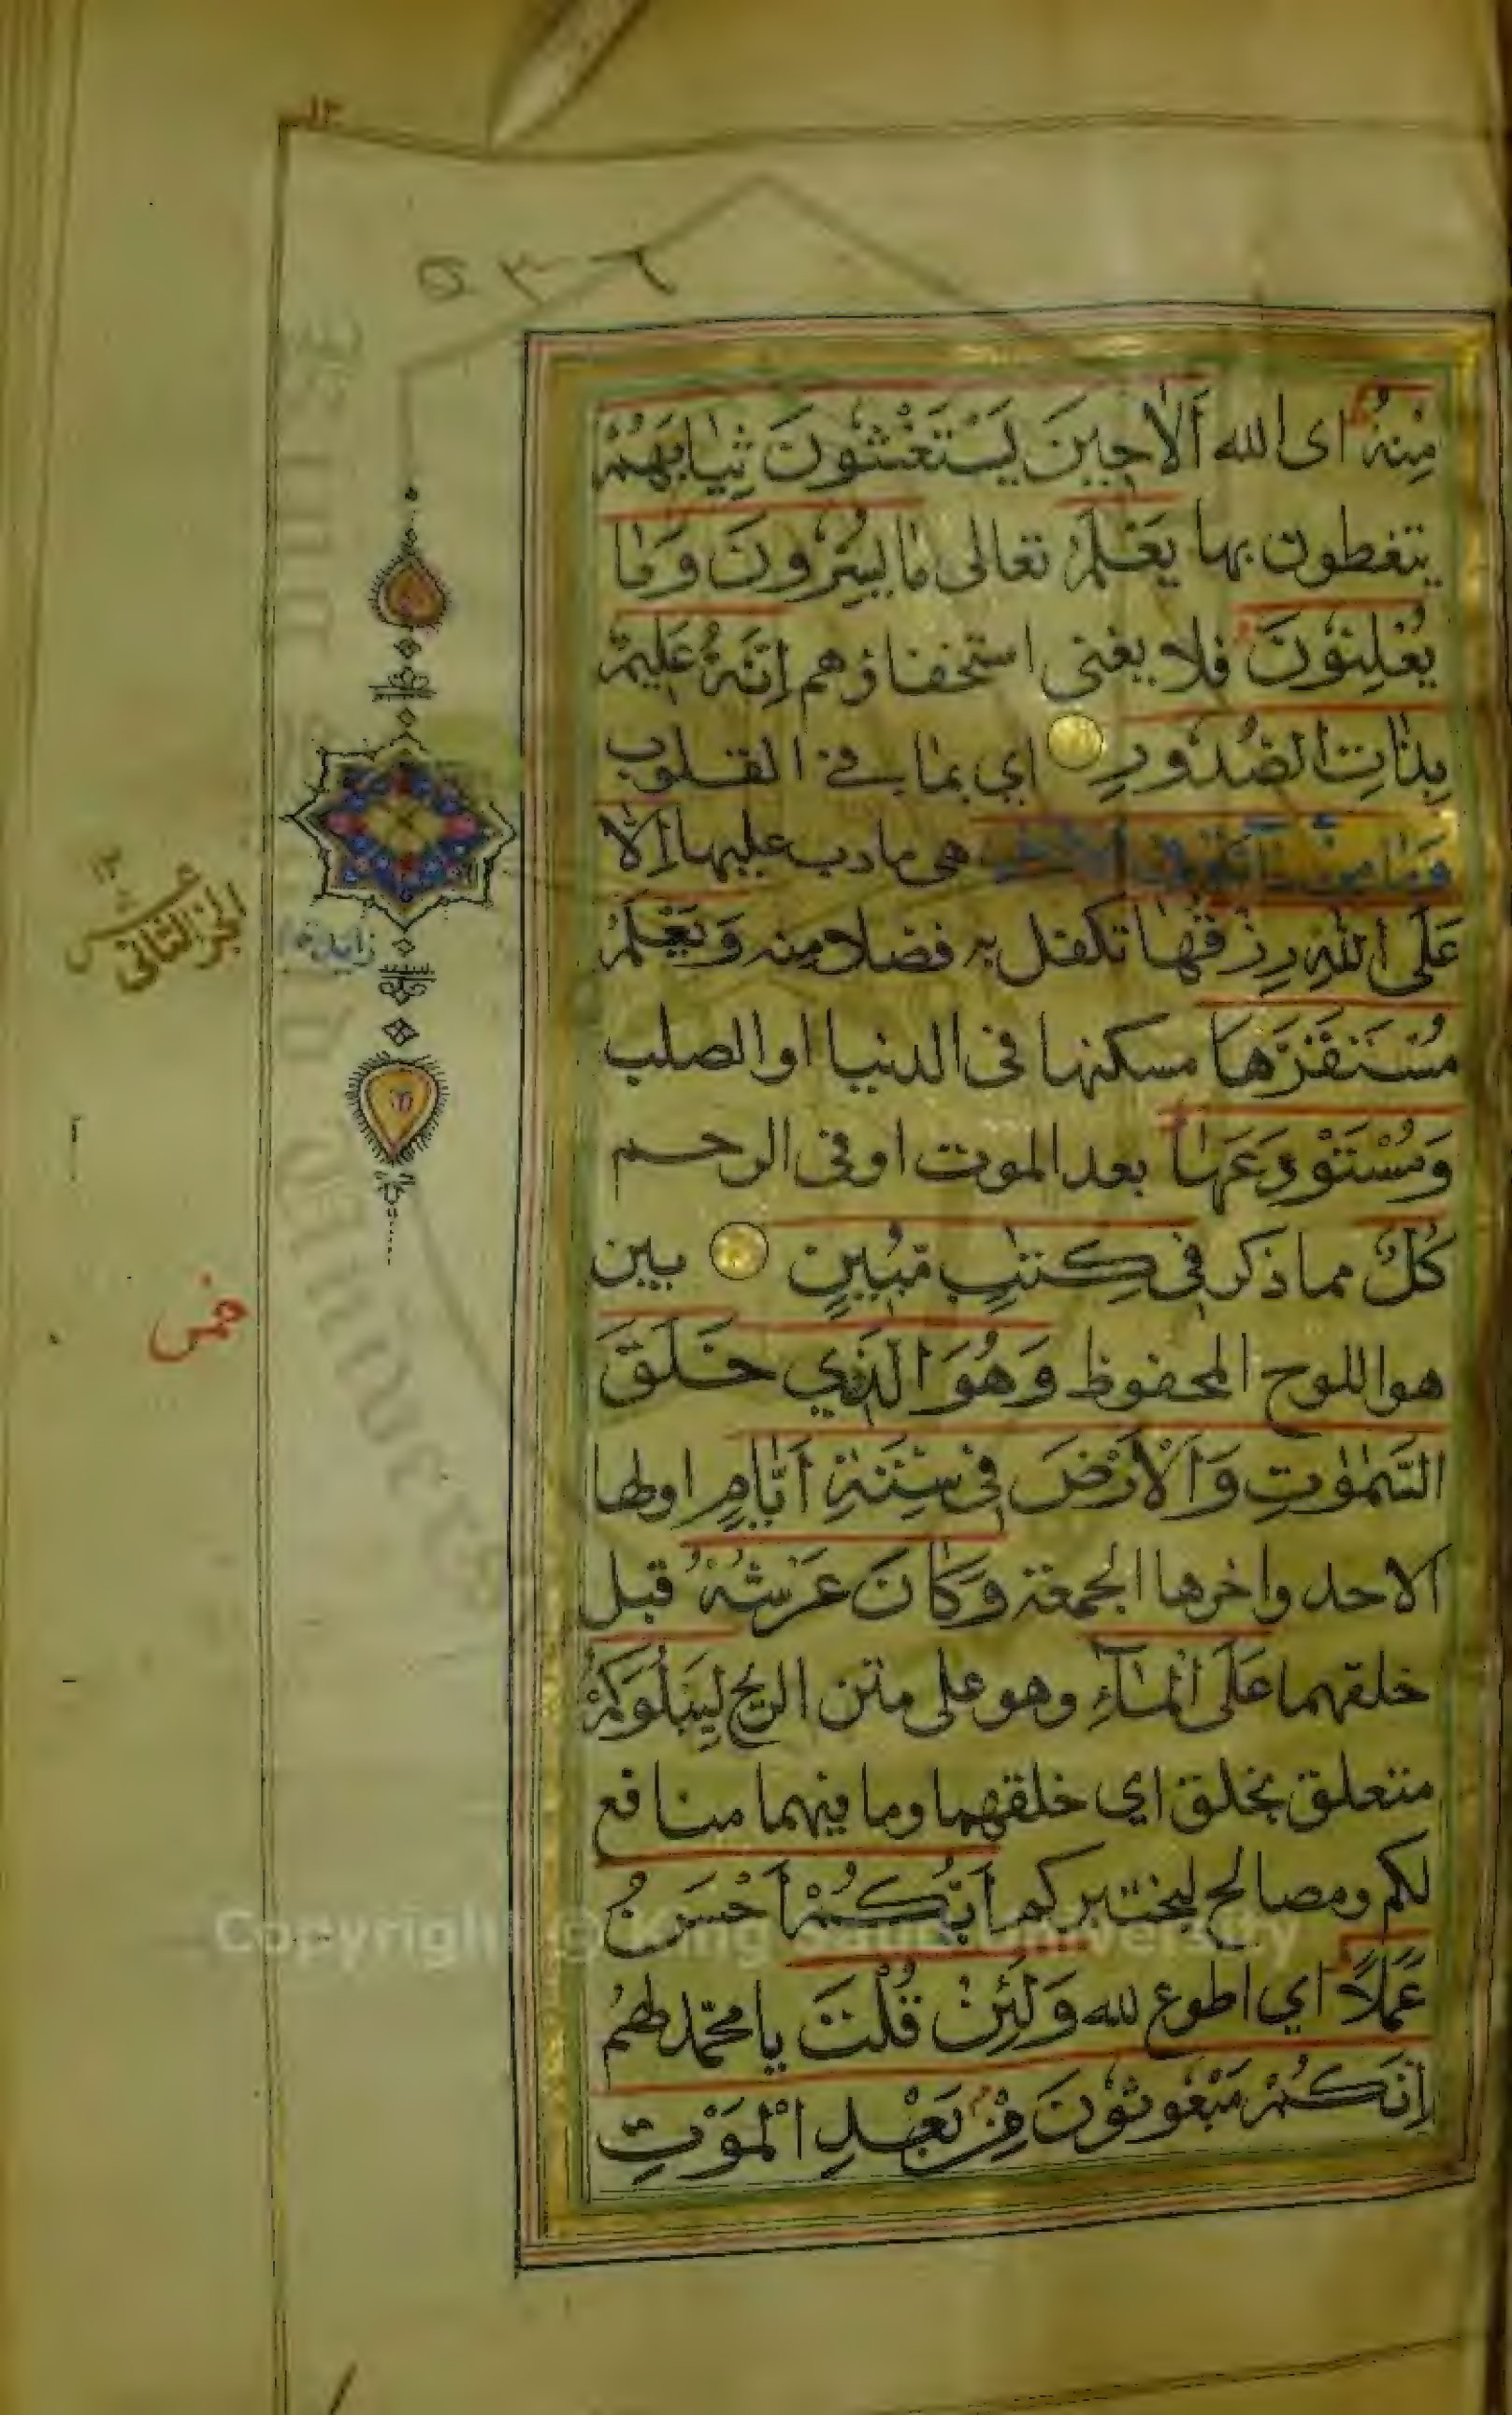 ٥٣٦
مِنْهُ اى الله اَلَا حِينَ يَسْتَغْشُونَ ثِيَابَهُمْ
يتغطون بها يَعْلَمُ تعالى مَا يُسِرُّونَ وَمَا
يُعْلِنُونَ فلا يغنى استخفاؤهم اِنَّهُ عَلِيمٌ
بِذَاتِ الصُّدُورِ اي بما في القلوب
وَمَا مِنْ دَابَّةٍ فِي الْاَرْضِ هى ما دب عليها اِلَّا
عَلَى اللهِ رِزْقُهَا تكفل به فضلا منه وَيَعْلَمُ
مُسْتَقَرَّهَا مسكنها فى الدنيا او الصلب
وَمُسْتَوْدَعَهَا بعد الموت او فى الرحم
كُلٌّ مما ذكر فِى كِتٰبٍ مُبِينٍ بين
هو اللوح المحفوظ وَهُوَ الَّذِي خَلَقَ
السَّمٰوٰتِ وَالْاَرْضَ فِى سِتَّةِ اَيَّامٍ اولها
الاحد واخرها الجمعة وَكَانَ عَرْشُهُ قبل
خلقهما عَلَى الْمَآءِ وهو على متن الريح لِيَبْلُوَكُمْ
متعلق بخلق اي خلقهما وما فيهما منافع
لكم ومصالح ليختبركم اَيُّكُمْ اَحْسَنُ
عَمَلًا اي اطوع لله وَلَئِنْ قُلْتَ يا محمّد لهم
اِنَّكُمْ مَبْعُوثُونَ مِنْ بَعْدِ الْمَوْتِ
الجزء الثانى عشر
١٢
Copyright © King Saud University